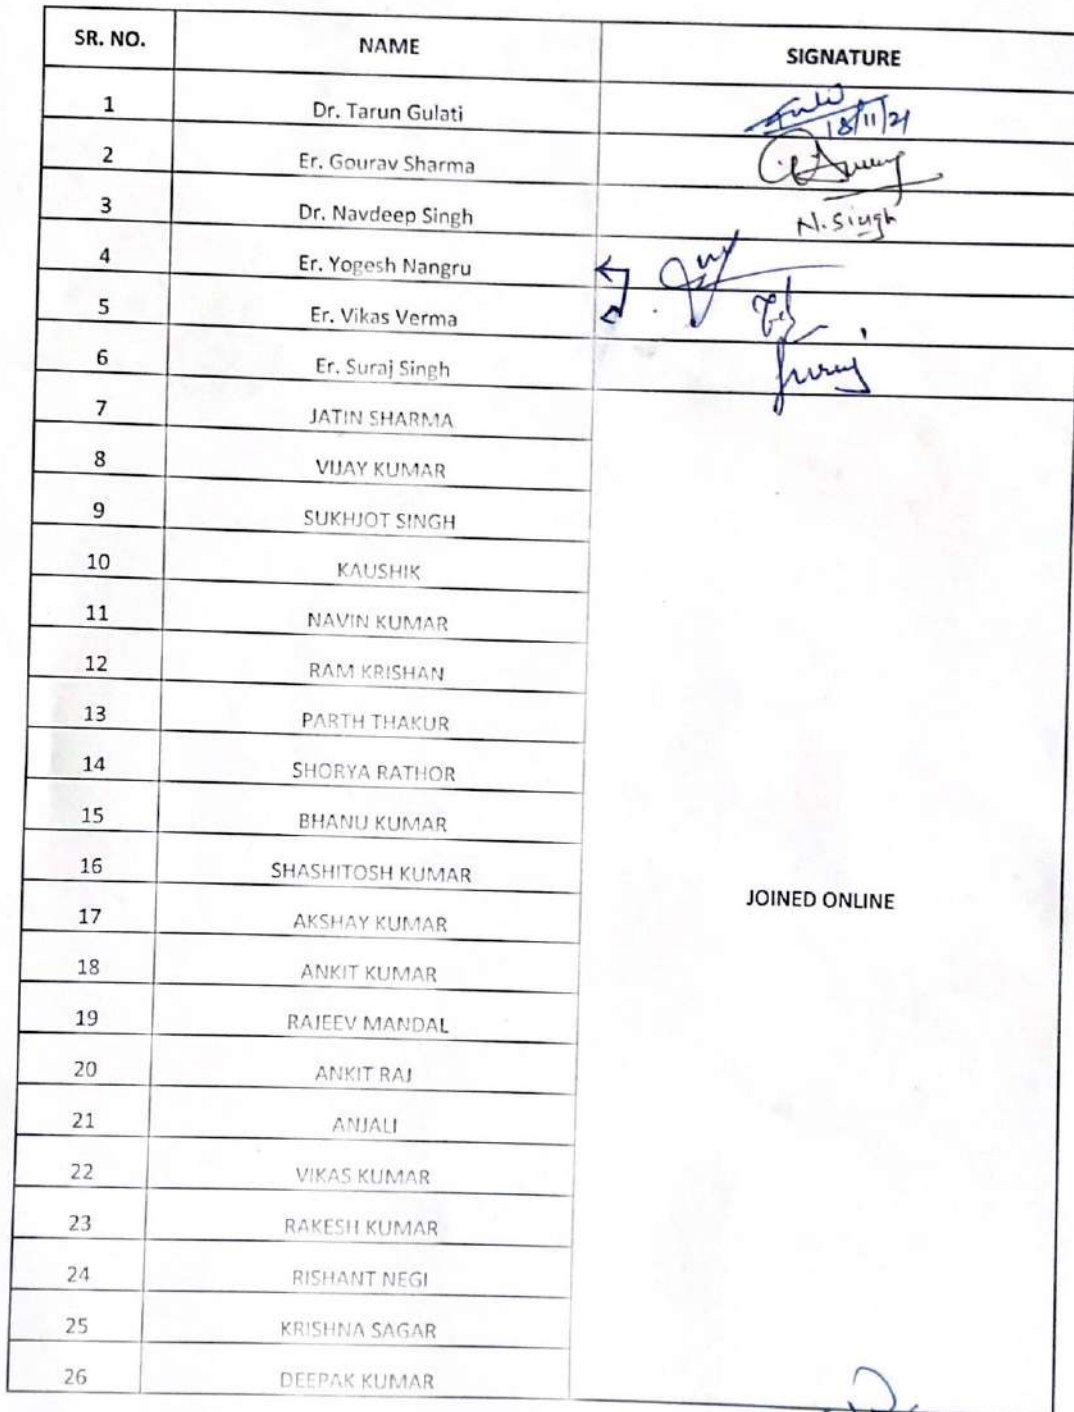 SR. NO. NAME SIGNATURE
1 Dr. Tarun Gulati
18/11/21
2 Er. Gourav Sharma
3 Dr. Navdeep Singh N. Singh
4 Er. Yogesh Nangru
5 Er. Vikas Verma
6 Er. Suraj Singh Suraj
7 JATIN SHARMA
8 VIJAY KUMAR
9 SUKHJOT SINGH
10 KAUSHIK
11 NAVIN KUMAR
12 RAM KRISHAN
13 PARTH THAKUR
14 SHORYA RATHOR
15 BHANU KUMAR
16 SHASHITOSH KUMAR
JOINED ONLINE
17 AKSHAY KUMAR
18 ANKIT KUMAR
19 RAJEEV MANDAL
20 ANKIT RAJ
21 ANJALI
22 VIKAS KUMAR
23 RAKESH KUMAR
24 RISHANT NEGI
25 KRISHNA SAGAR
26 DEEPAK KUMAR